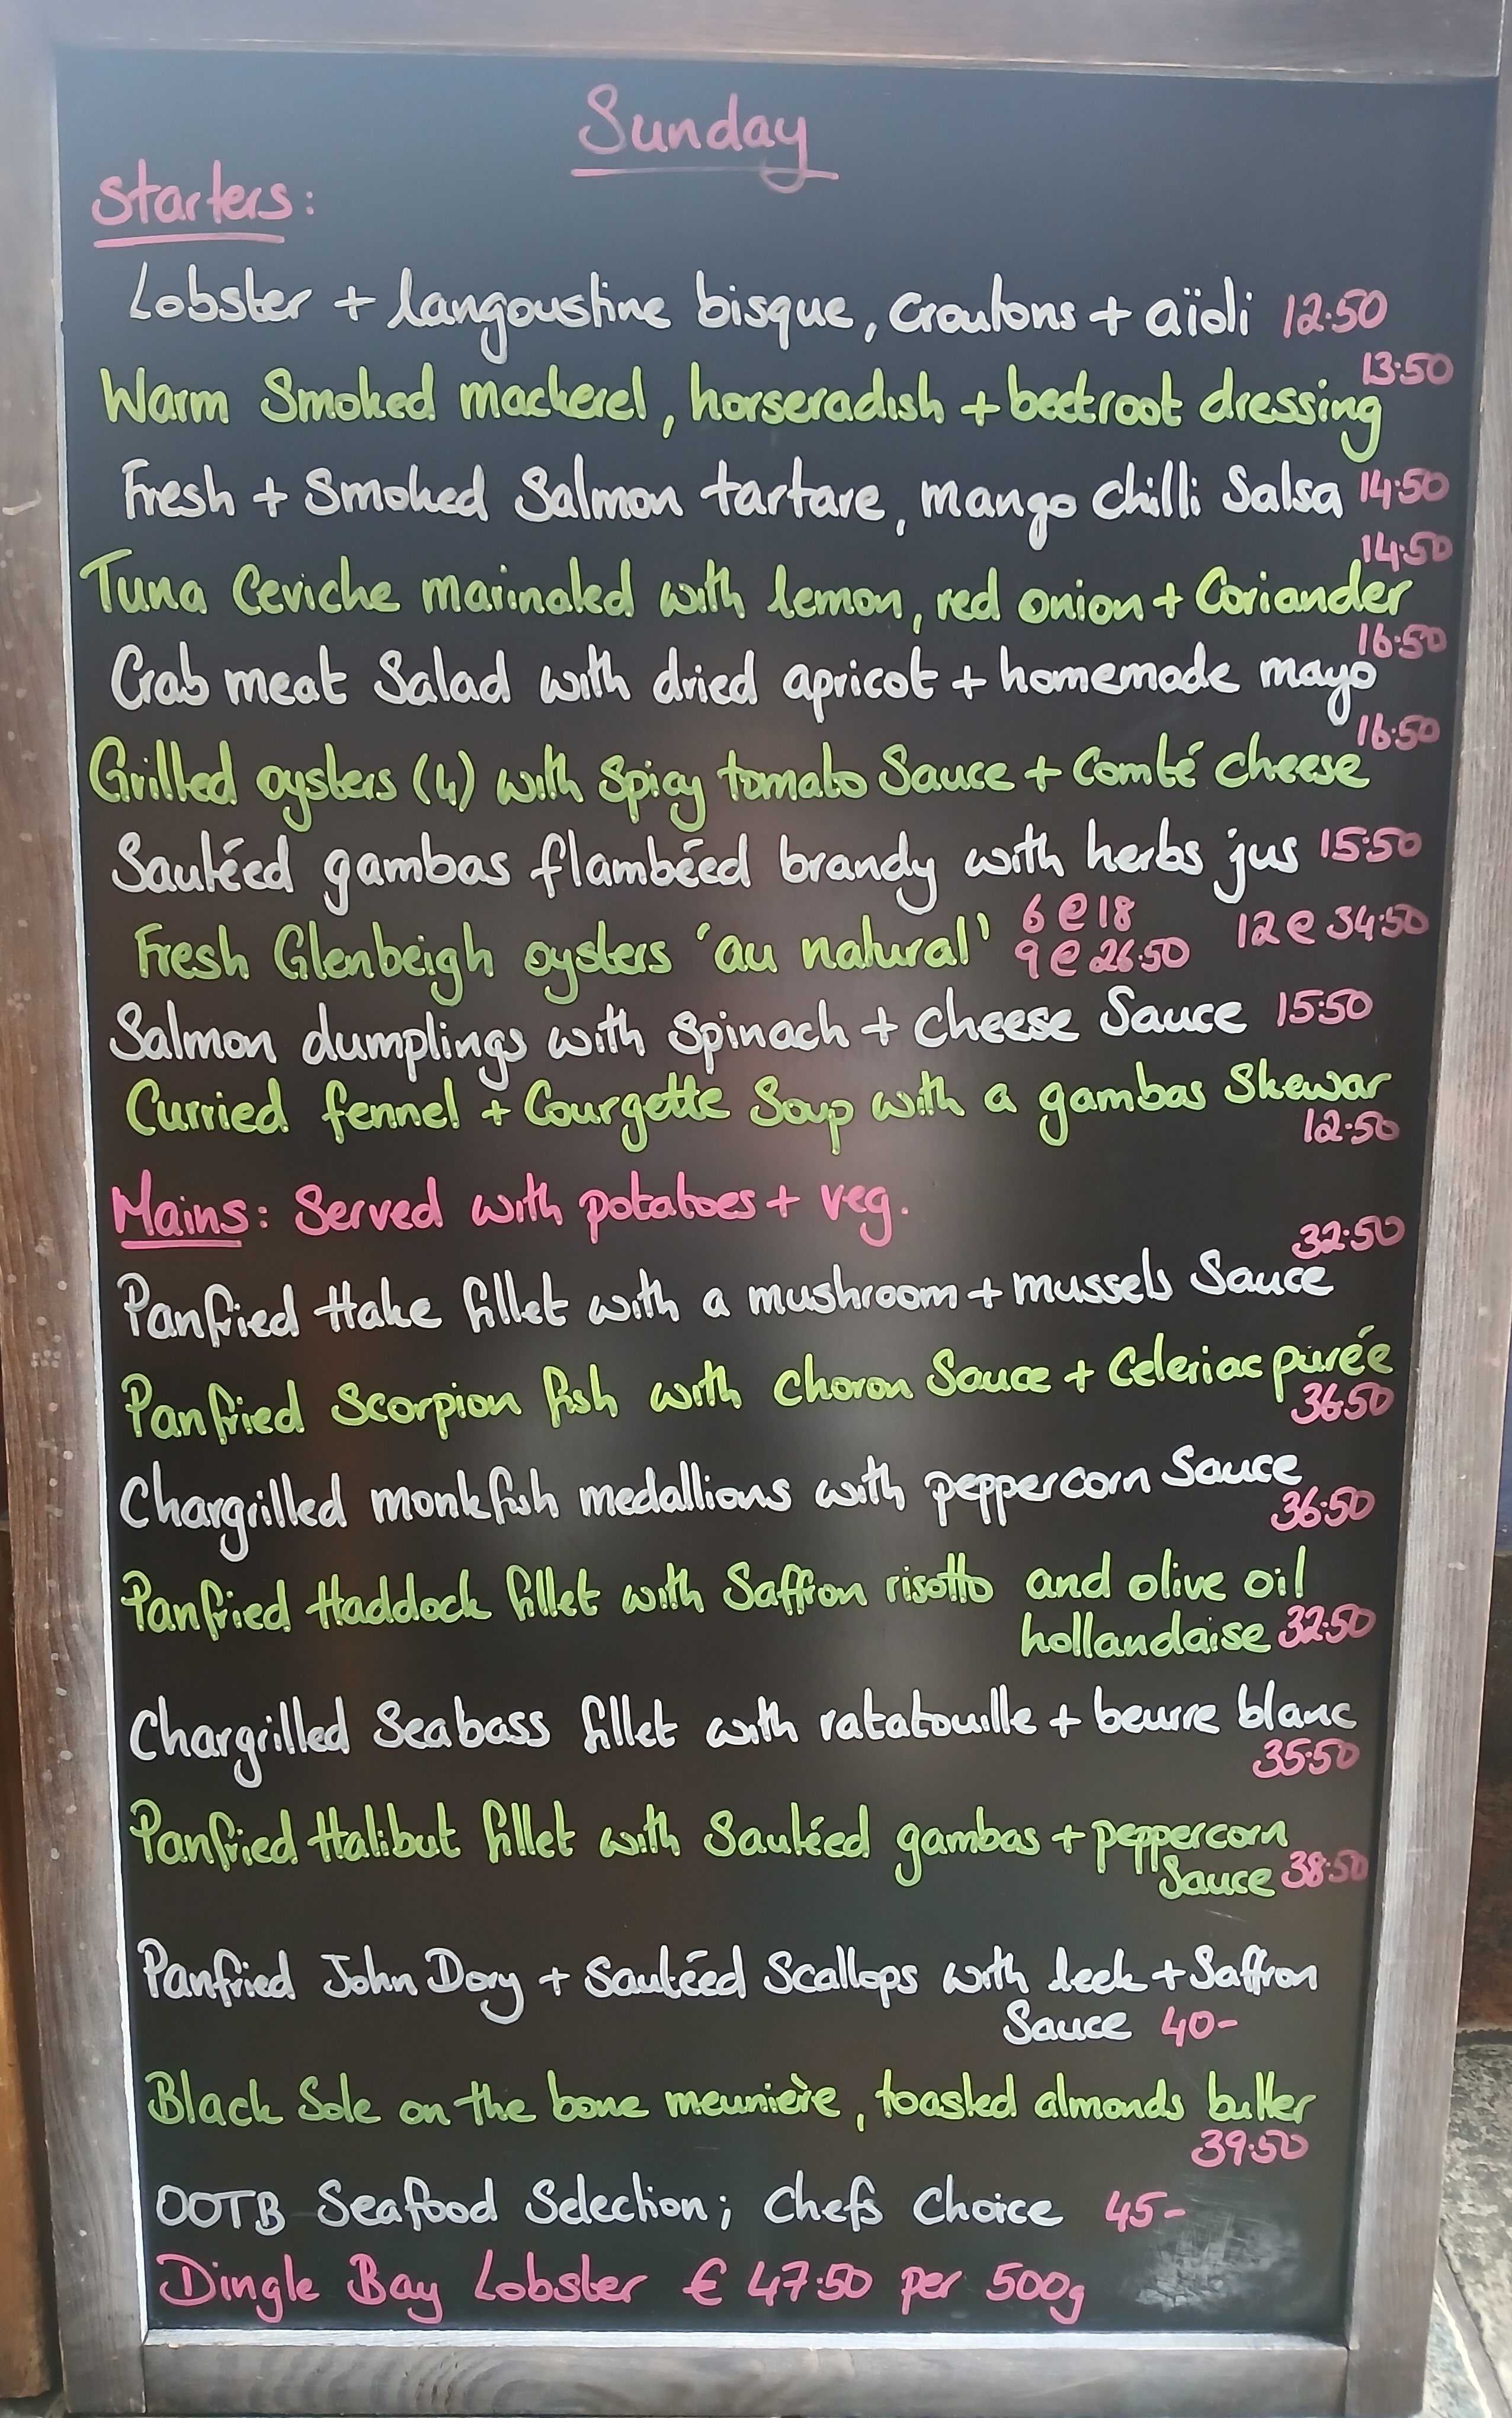 Sunday
Starters:
Lobster + langoustine bisque, croutons + aïoli 12.50
13.50
Warm Smoked mackerel, horseradish + beetroot dressing
Fresh + Smoked Salmon tartare, mango chilli Salsa 14.50
14.50
Tuna Ceviche marinated with lemon, red onion + Coriander
16.50
Crab meat Salad with dried apricot + homemade mayo
16.50
Grilled oysters (4) with Spicy tomato Sauce + Comté cheese
Sautéed gambas flambéed brandy with herbs jus 15.50
6 @ 18
12 @ 34.50
Fresh Glenbeigh oysters 'au natural' 9 @ 26.50
Salmon dumplings with Spinach + cheese Sauce 15.50
Curried fennel + Courgette Soup with a gambas Skewar
12.50
Mains: Served with potatoes + veg.
32.50
Panfried Hake fillet with a mushroom + mussels Sauce
Panfried Scorpion fish with choron Sauce + Celeriac purée
36.50
Chargrilled monkfish medallions with peppercorn Sauce
36.50
Panfried Haddock fillet with Saffron risotto and olive oil
hollandaise 32.50
Chargrilled Seabass fillet with ratatouille + beurre blanc
35.50
Panfried Halibut fillet with Sautéed gambas + peppercorn
Sauce 38.50
Panfried John Dory + Sautéed Scallops with leek + Saffron
Sauce 40-
Black Sole on the bone meunière, toasted almonds butter
39.50
OOTB Seafood Selection; Chefs Choice 45-
Dingle Bay Lobster € 47.50 per 500g